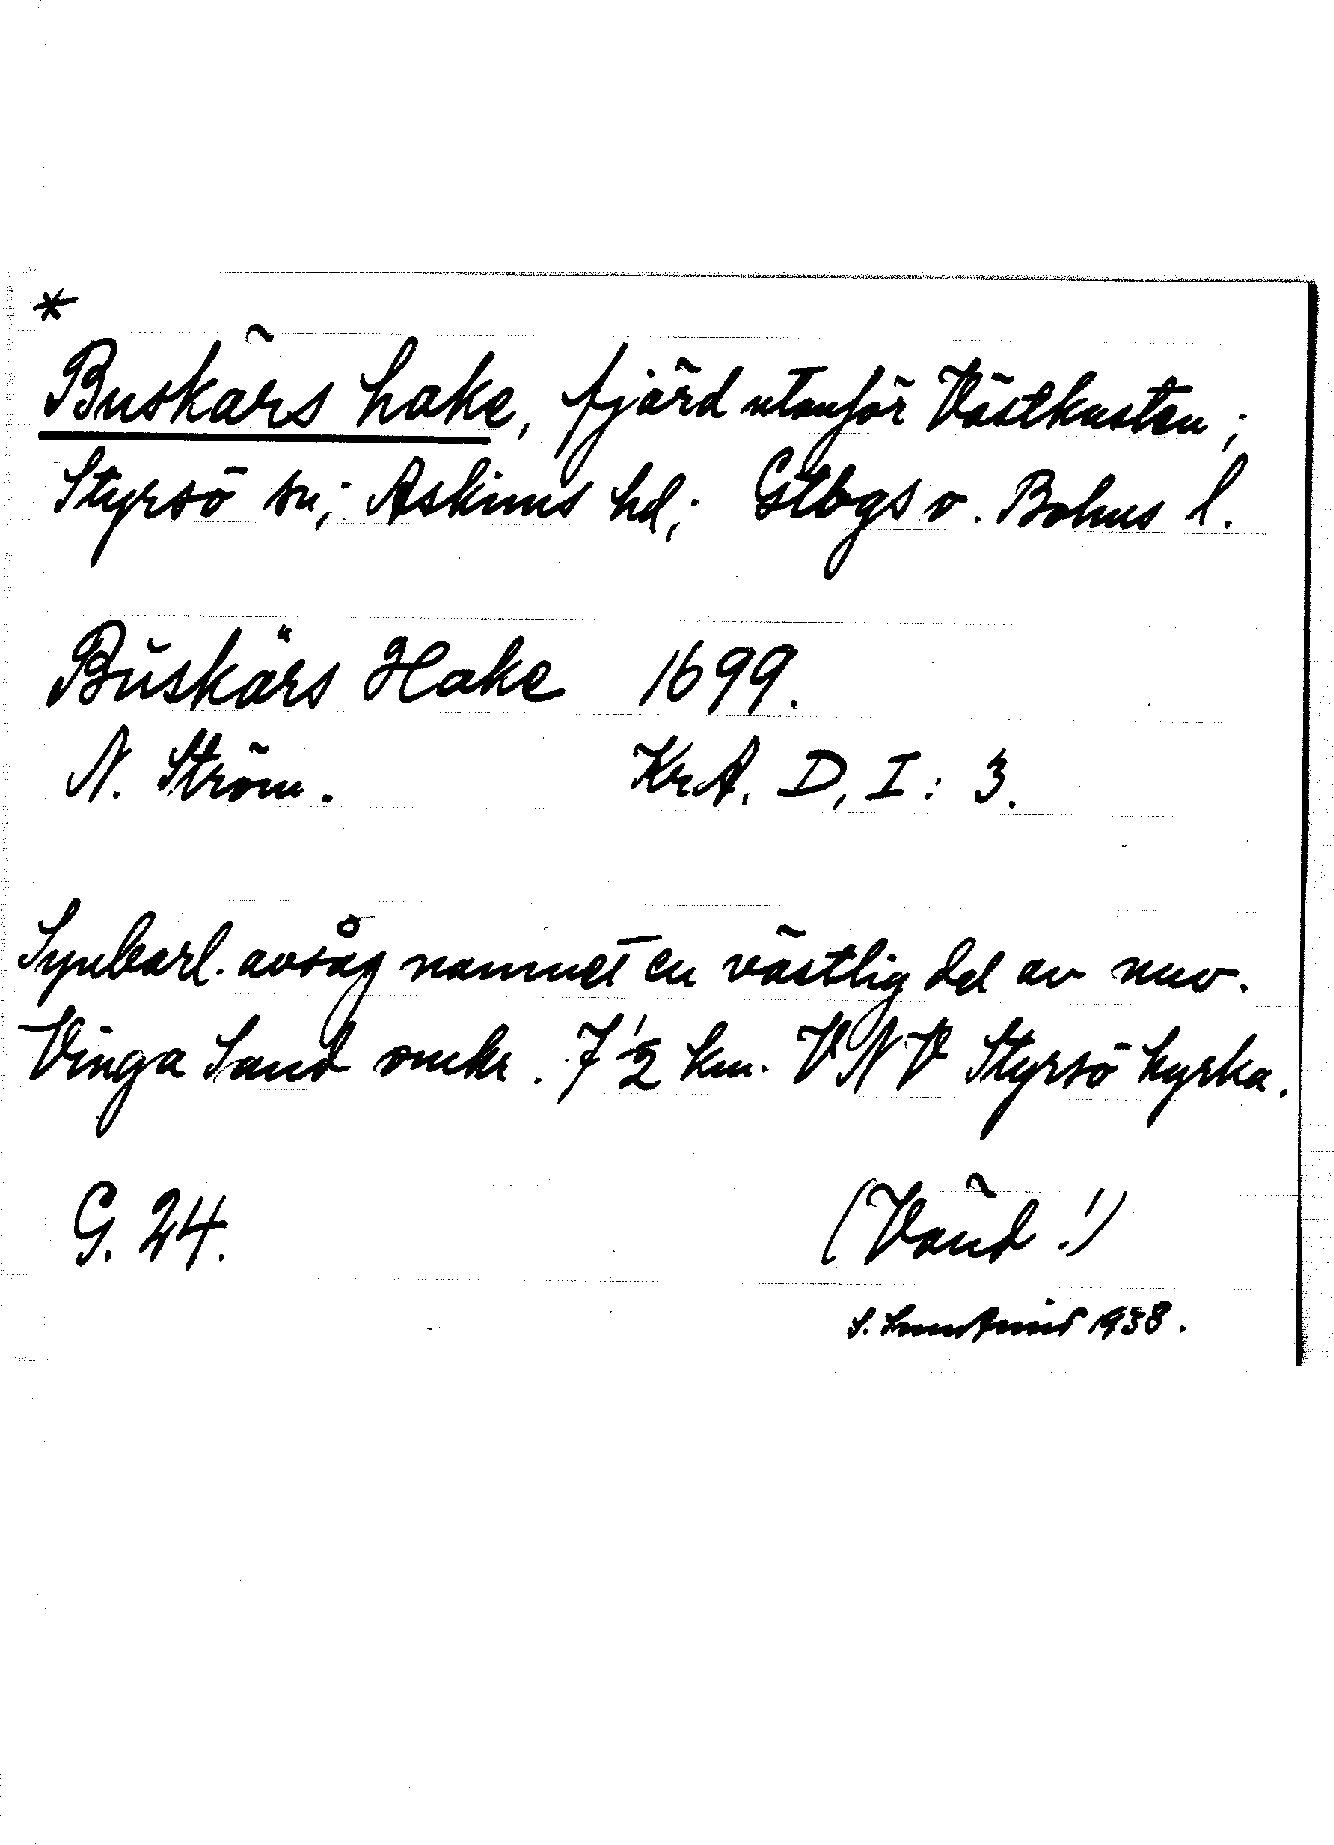 *
Buskärs hake, fjärd utanför Västkusten;
Styrsö sn; Askims hd; Gtbgs o. Bohus l.
Bŭskärs Hake 1699.
N. Ström. KrA. D, I: 3.
Synbarl. avsåg namnet en västlig del av nuv.
Vinga Sand omkr. 7 1/2 km. VNV Styrsö kyrka.
G. 24. (Vänd!)
S. 1938.